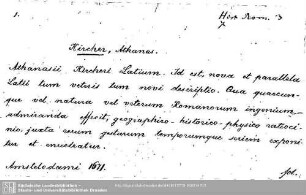 1.
Hist. Rom. 3
7
Kircher, Athanas.
Athanasii Kircheri Latium. Id est, nova et parallela
Latii tum veteris tum novi descriptio. Qua quaecun-
que vel natura vel veterum Romanorum ingenium
admiranda effecit, geographico-historico-physico ratioci-
nio, juxta rerum gestarum temporumque seriem exponi-
tur et enucleatur.
Amstelodami 1671.
fol.